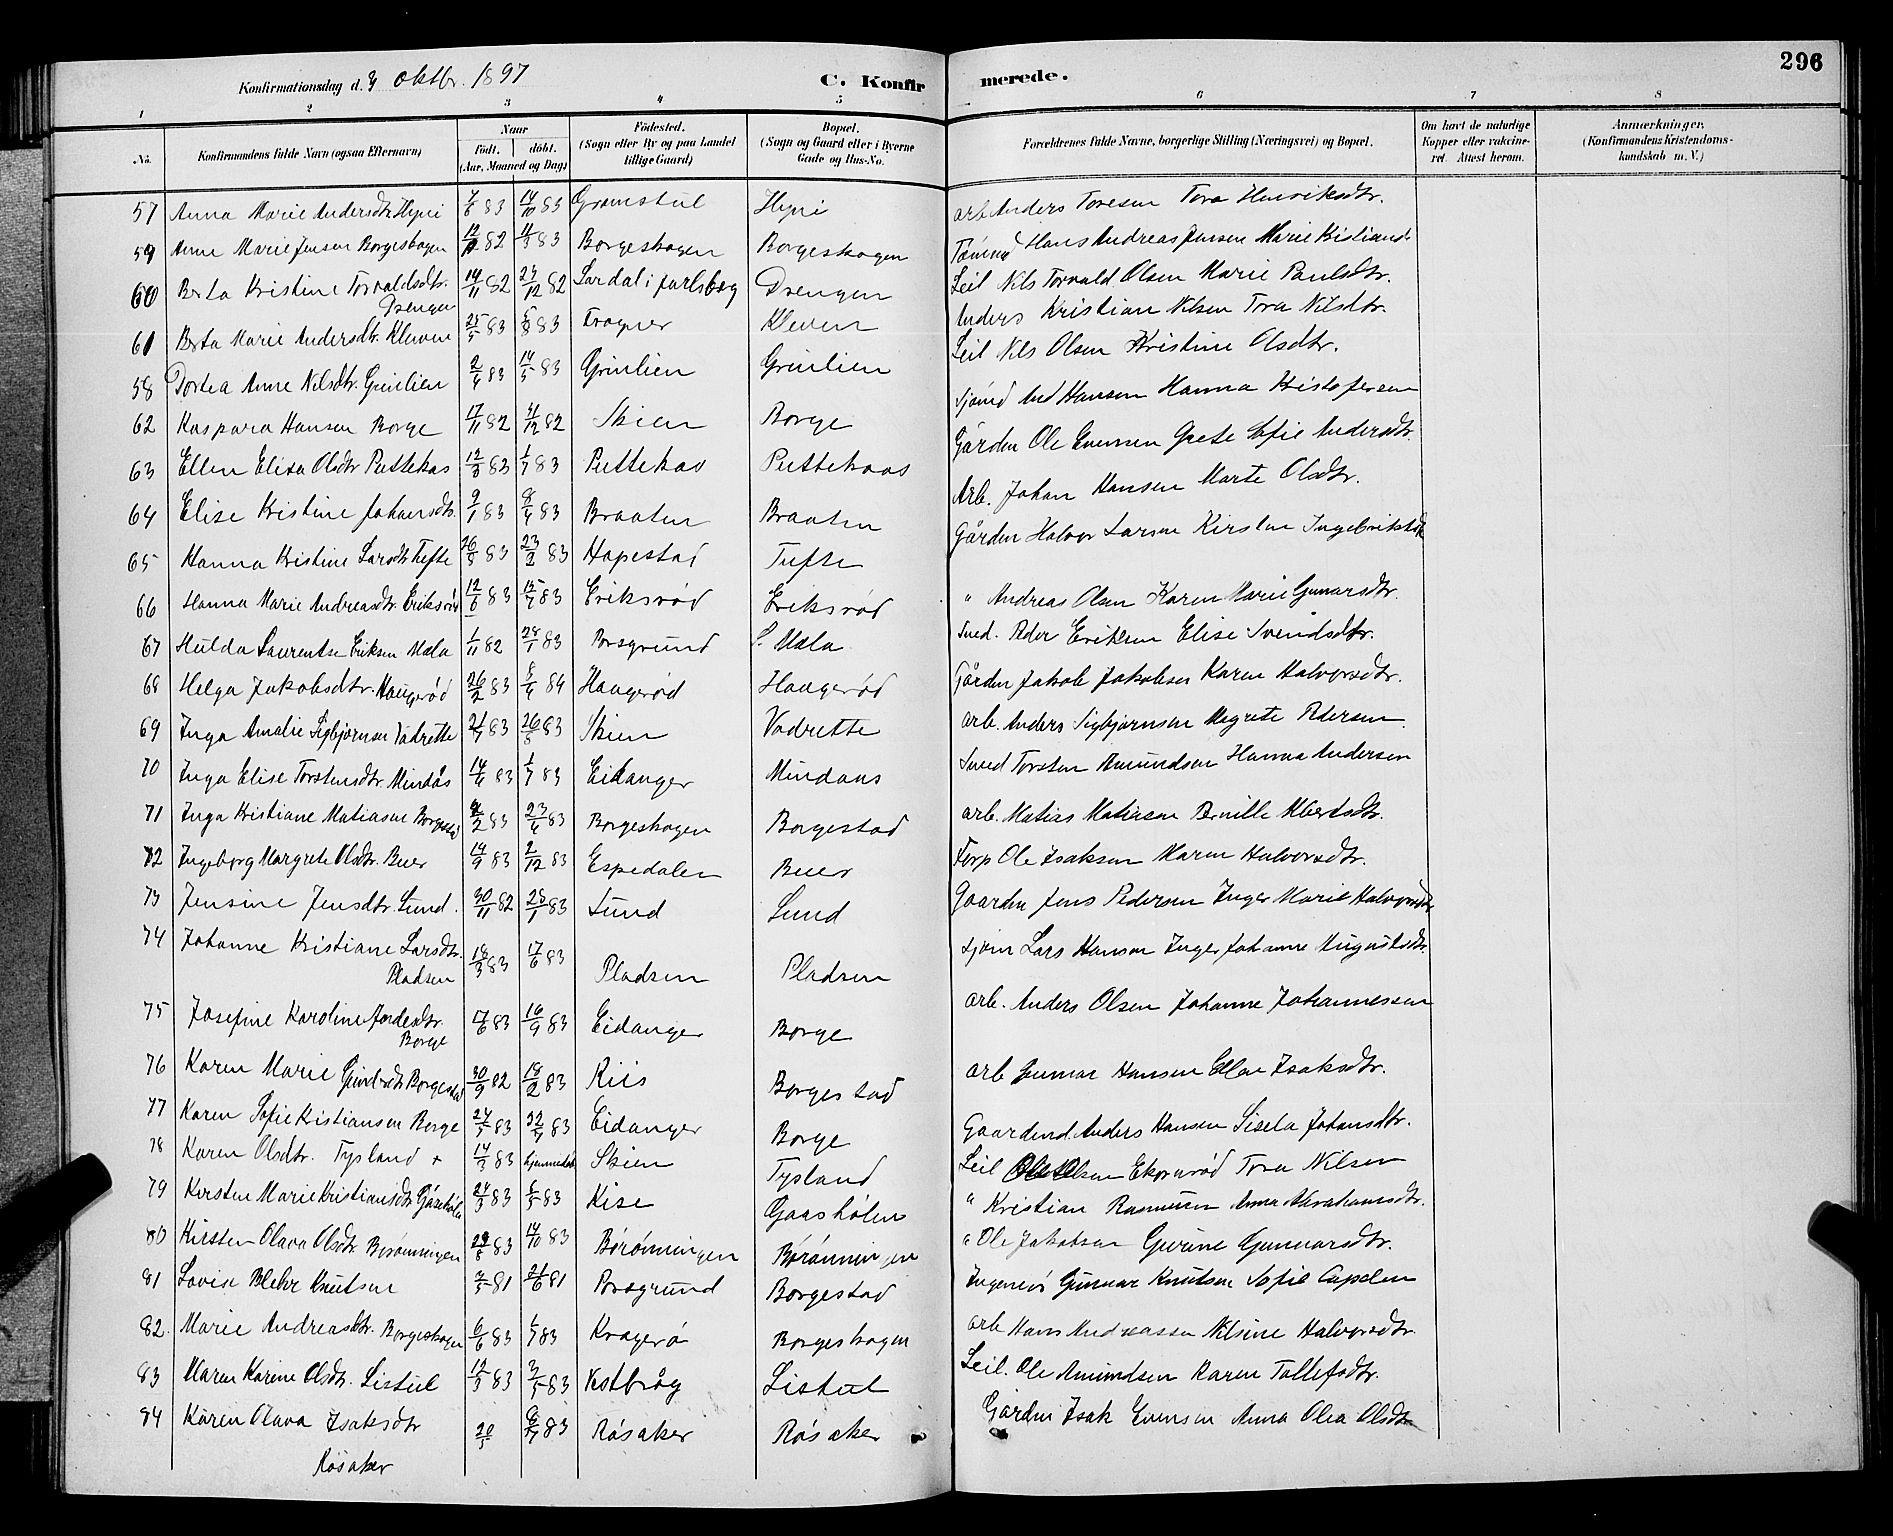 Konfirmationsdag d. 3 oktbr. 1897
C. Konfirmerede.
296
1 2 3 4 5 6 7 8
No.
Konfirmandens fulde Navn (ogsaa Efternavn)
Naar
født. døbt.
(Aar, Maaned og Dag)
Fødested.
(Sogn eller By og paa Landet tillige Gaard)
Bopæl.
(Sogn og Gaard eller i Byerne Gade og Hus-No.
Forældrenes fulde Navne, borgerlige Stilling (Næringsvei) og Bopæl.
Om havt de naturlige Kopper eller vaccineret. Attest herom.
Anmærkninger.
(Konfirmandens Kristendomskundskab m. V.)
57 Anna Marie Andersdtr. Hyni 7/6 83 14/10 83 Gromstul Hyni arb Anders Toresen Tora Henriksdtr.
59 Anne Marie Jensen Borgeskogen 82 83 Borgeskogen Borgeskogen Tømmd Hans Andreas Jensen Marie Kristiansd
60 Berta Kristine Torvaldsdtr. Drengen 14/11 82 23/12 82 Lardal i Jarlsberg Drengen Leil Nils Torvald Olsen Marie Paulsdtr.
61 Berta Marie Andersdtr. Kleven 25/5 83 5/8 83 Frogner Kleven Anders Kristian Nilsen Tora Nilsdtr.
58 Dortea Anne Nilsdtr. Grinlien 2/4 83 14/5 83 Grinlien Grinlien Leil Nils Olsen Kristine Olsdtr.
62 Kaspara Hansen Borge 17/11 82 12 82 Skien Borge Sjømd And Hansen Hanna Kristofersen
63 Ellen Elisa Olsdtr Puttekas 12/3 83 1/7 83 Puttekas Puttekaas Gården Ole Evensen Grete Sofie Andersdtr.
64 Elise Kristine Johansdtr. 9/1 83 8/4 83 Braaten Braaten Arb. Johan Hansen Marte Olsdtr.
65 Hanna Kristine Larsdtr Tufte 83 83 Hapestad Tufte Gården Halvor Larsen Kirsten Ingebriktsdtr
66 Hanna Marie Andreasdtr. Eriksrød 12/6 83 15/7 83 Eriksrød Eriksrød " Andreas Olsen Karen Marie Gunarsdtr.
67 Hulda Laurentse Eriksen Mæla 1/11 82 28/1 83 Porsgrund S. Mæla Sned. Peder Eriksen Elise Svendsdtr.
68 Helga Jakobsdtr. Haugerød 26/2 83 84 Haugerød Haugerød Gården Jakob Jakobsen Karen Halvorsdtr.
69 Inga Amalie Sigbjørnsen Vadrette 83 26/8 83 Skien Vadrette arb. Anders Sigbjørnsen Megrete Pedersen
70 Inga Elise Torstensdtr. Mindås 14/4 83 1/7 83 Eidanger Mindaas Sned Torsten Amundsen Hanna Andersen
71 Inga Kristiane Matiasen Borgestad 83 23/4 83 Borgeskogen Borgestad arb. Matias Matiasen Pernille Albertsdtr.
72 Ingeborg Margrete Olsdtr. Buer 14/9 83 2/12 83 Espedalen Buer Forp Ole Isaksen Maren Halvorsdtr.
73 Jensine Jensdtr. Lund. 30/11 82 28/1 83 Lund Lund Gaarden Jens Pedersen Inger Marie Halvorsdtr
74 Johanne Kristiane Larsdtr. Pladsen 18/3 83 17/6 83 Pladsen Pladsen sjøm Lars Hansen Inger Johanne Augustsdtr.
75 Josefine Karoline Andersdtr. Borge 17/6 83 16/9 83 Eidanger Borge arb. Anders Olsen Johanne Johannessen
76 Karen Marie Gunarsdtr Borgestad 30/9 82 18/2 83 Riis Borgestad arb Gunnar Hansen Ellen Isaksdtr.
77 Karen Sofie Kristiansen Borge 24/5 83 22/7 83 Eidanger Borge Gaardend. Anders Hansen Sisela Johansdtr.
78 Karen Olsdtr. Tysland + 14/3 83 hjemmedøbt Skien Tysland Leil Ole Olsen Ekornrød Tora Nilsen
79 Kirsten Marie Kristiansdtr Gåsehølen 24/3 83 6/5 83 Kise Gaashølen " Kristian Rasmusen Anna Abrahamsdtr.
80 Kirsten Olava Olsdtr Børønningen 29/8 83 14/10 83 Børønningen Børønningen " Ole Jakobsen Gurine Gunnarsdtr.
81 Lovise Blehr Knutsen 5 81 6 81 Porsgrund Borgestad Ingeniør Gunnar Knutsen Sofie Cappelen
82. Marie Andreasdtr. Borgeskogen 6/6 83 1/7 83 Kragerø Borgeskogen arb Hans Andreassen Nilsine Halvorsdtr.
83 Maren Karine Olsdtr. Listul 12/3 83 3/5 83 Vestbråg Listul Leil. Ole Amundsen Karen Tollefsdtr.
84 Karen Olava Isaksdtr Røsaker 20/5 83 Røsaker Røsaker Gården Isak Evensen Anna Olea Olsdtr